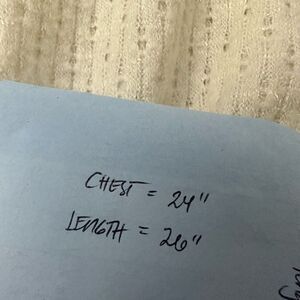 CHEST = 24"
LENGTH = 26"